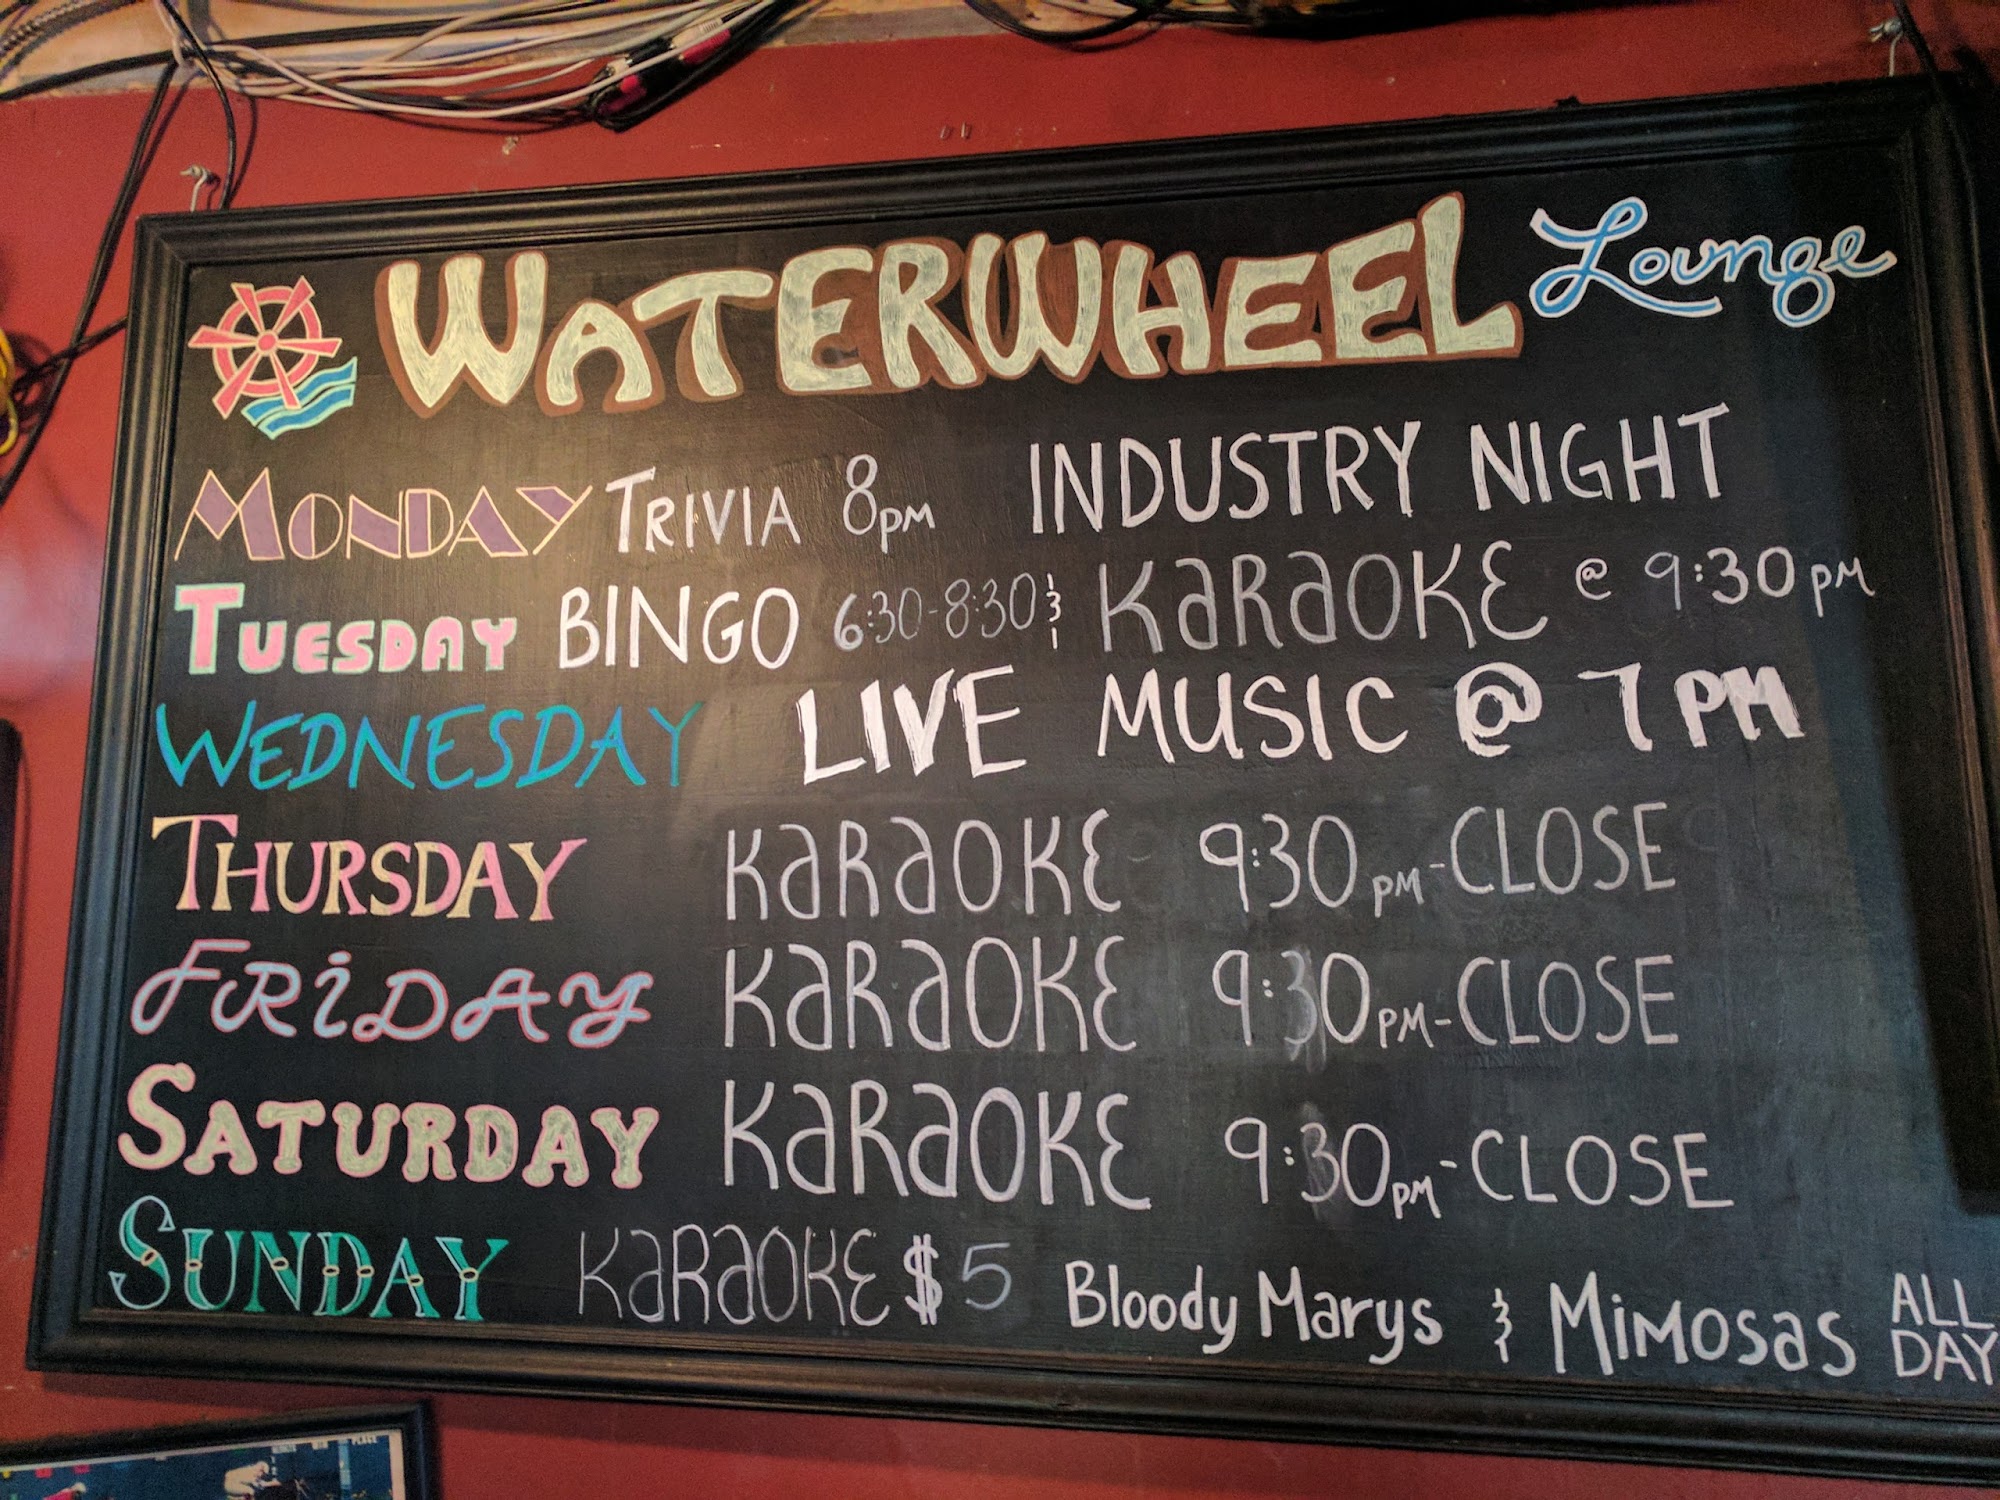 WATERWHEEL Lounge
MONDAY TRIVIA 8PM INDUSTRY NIGHT
TUESDAY BINGO 6:30-8:30 & KARAOKE @ 9:30PM
WEDNESDAY LIVE MUSIC @ 7PM
THURSDAY KARAOKE 9:30PM-CLOSE
FRiDAY KARAOKE 9:30PM-CLOSE
SATURDAY KARAOKE 9:30PM-CLOSE
SUNDAY KARAOKE $5 Bloody Marys & MiMosas ALL DAY